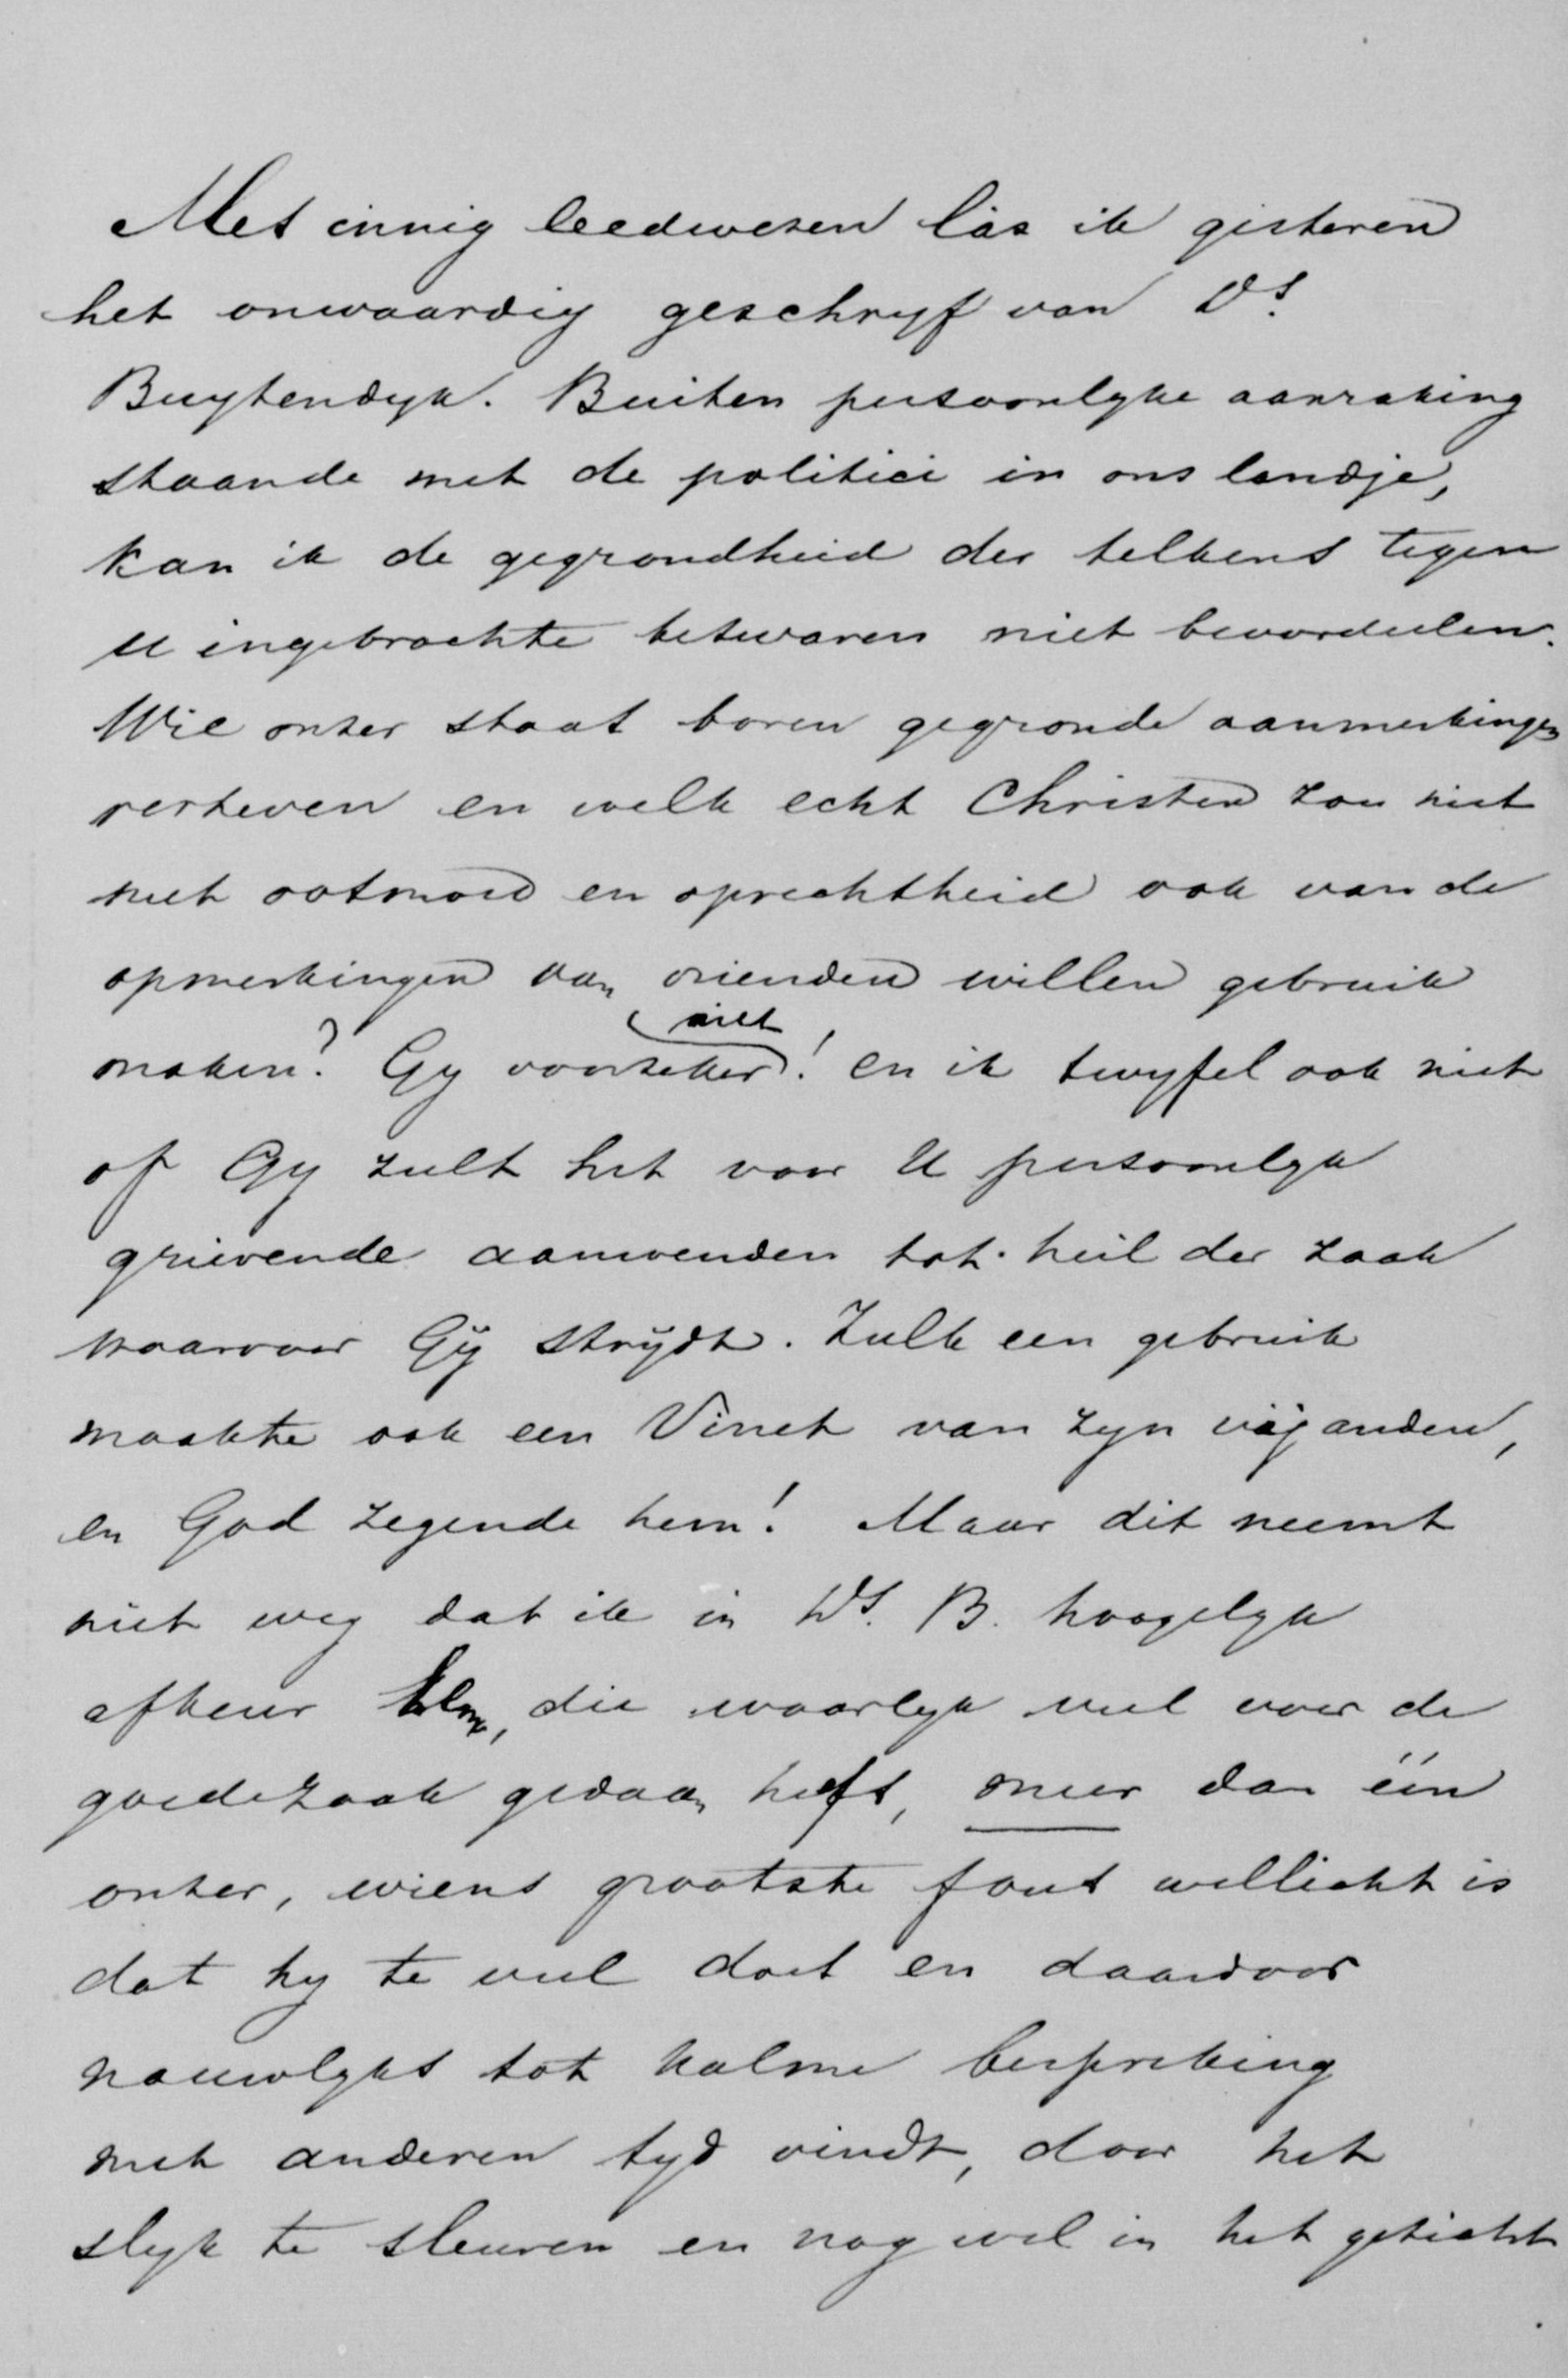 Met innig leedwezen las ik gisteren
het onwaardig geschryf van Ds.
Buytendyk. Buiten persoonlyke aanraking
staande met de politici in ons landje,
kan ik de gegrondheid der telkens tegen
U ingebrachte bezwaren niet beoordeelen.
Wie onzer staat boven gegronde aanmerkingen
verheven en welk echt Christen zou niet
met ootmoed en oprechtheid ook van de
opmerkingen van vrienden willen gebruik
maken? Gy voorzeker niet! en ik twyfel ook niet
of Gy zult het voor U persoonlyk
grievende aanwenden tot heil der zaak
waarvoor Gÿ strÿdt. Zulk een gebruik
maakte ook een Vinet van zyn vijanden,
en God zegende hem! Maar dit neemt
niet weg dat ik in Ds. B. hoogelyk
afkeur die waarlyk veel voor de
goede zaak gedaan heeft, meer dan één
onzer, wiens grootste fout wellicht is
dat hy te veel doet en daardoor
nauwlyks tot kalme bespreking
met anderen tyd vindt, door het
slyk te sleuren en nog wel in het gezicht